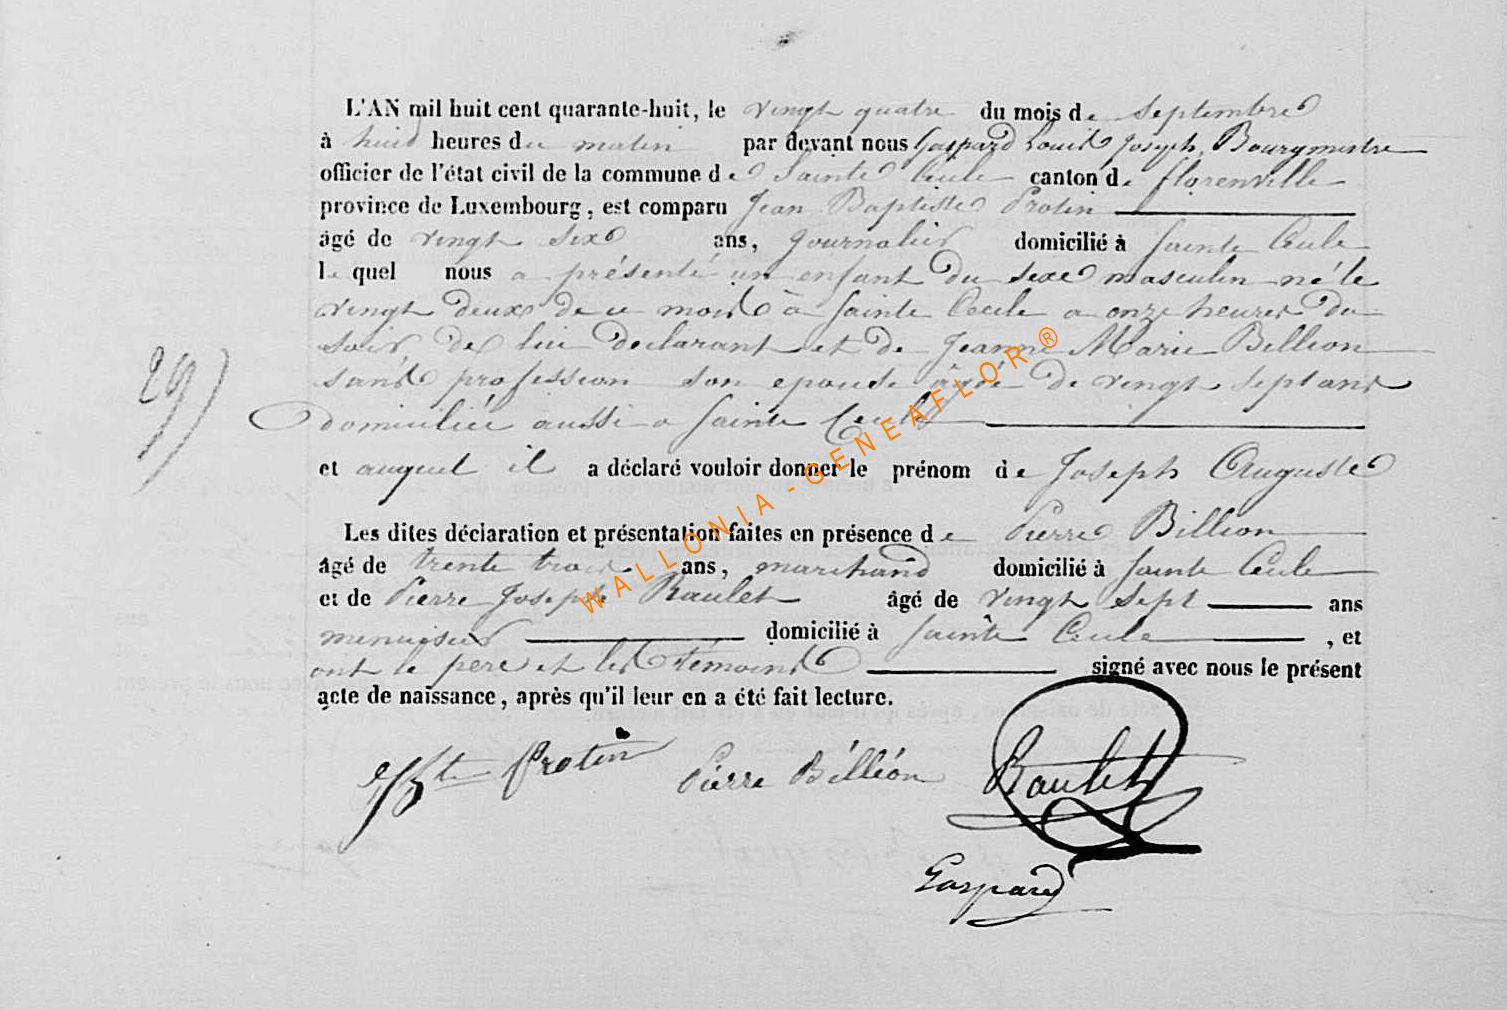 L'AN mil huit cent quarante-huit, le vingt quatre du mois de Septembre
à huit heures du matin par devant nous Gaspard Louis Joseph, Bourgmestre
officier de l'état civil de la commune de Sainte Cecile canton de florenville
province de Luxembourg, est comparu Jean Baptiste Protin
âgé de vingt six ans, journalier domicilié à Sainte Cecile
le quel nous a présenté un enfant du sexe masculin né le
vingt deux de ce mois à Sainte Cecile a onze heures du
soir de lui declarant et de Jeanne Marie Billion
sans profession son epouse âgée de vingt sept ans
domiciliée aussi a Sainte Cecile
29)
et auquel il a déclaré vouloir donner le prénom de Joseph Auguste
Les dites déclaration et présentation faites en présence de Pierre Billion
âgé de trente trois ans, marchand domicilié à Sainte Cecile
et de Pierre Joseph Raulet âgé de vingt sept ans
menuisier domicilié à Sainte Cecile, et
ont le pere et les témoins signé avec nous le présent
acte de naissance, après qu'il leur en a été fait lecture.
JBte Protin Pierre Billión Raulet
Gaspard
WALLONIA - GENEAFLOR ®